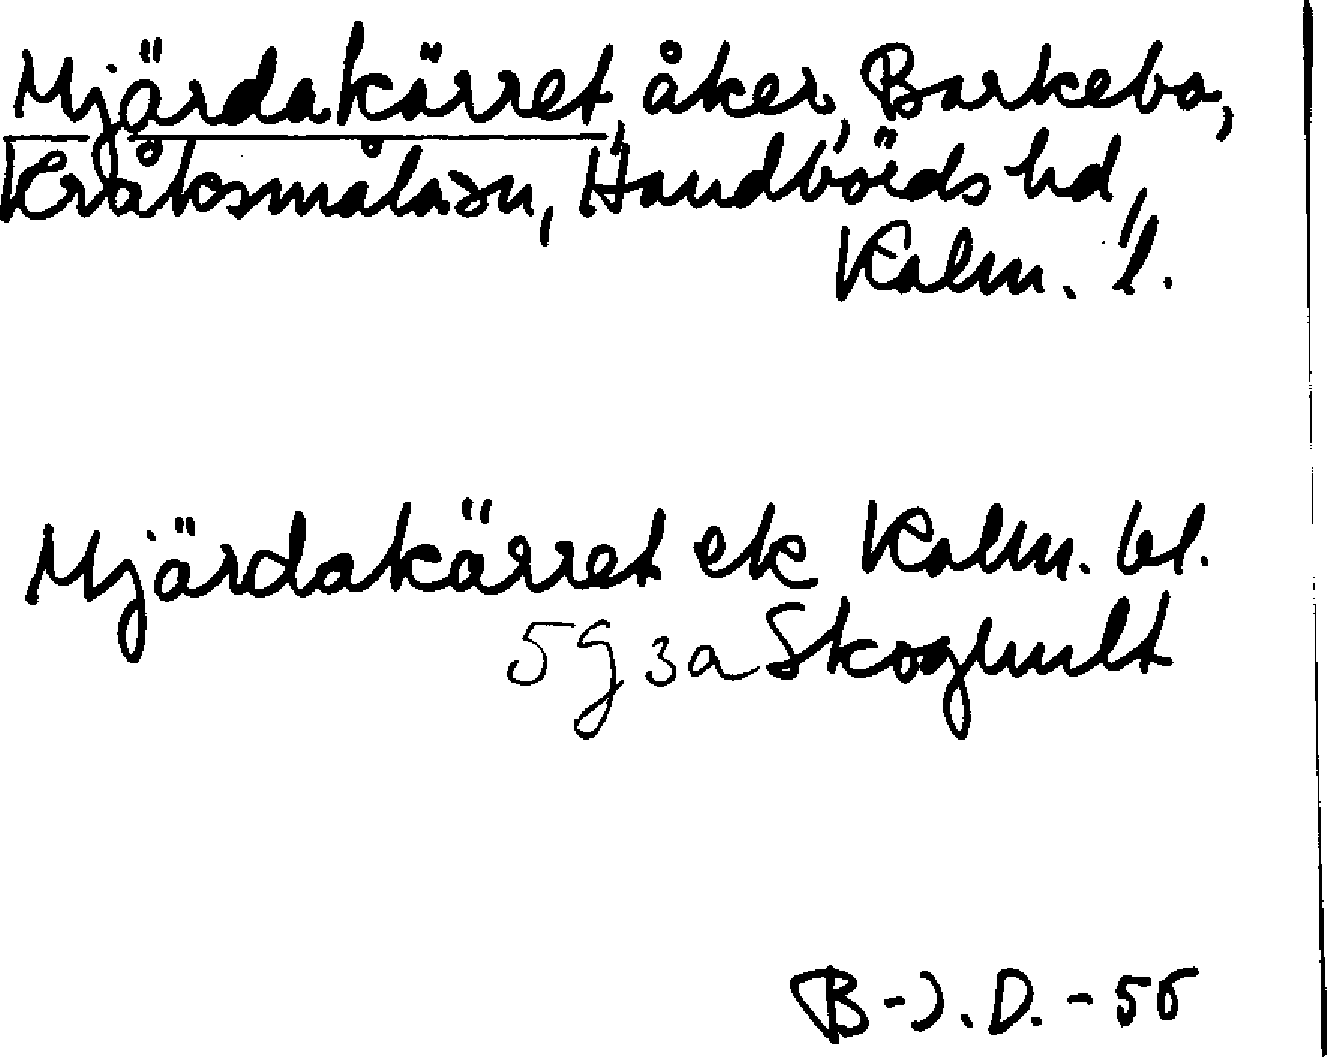 Mjärdakärret, åker, Barkebo,
Kråksmåla sn, Handbörds hd,
Kalm. l.
Mjärdakärret ek Kalm. bl.
5g3a Skoghult
B-J. D. - 56